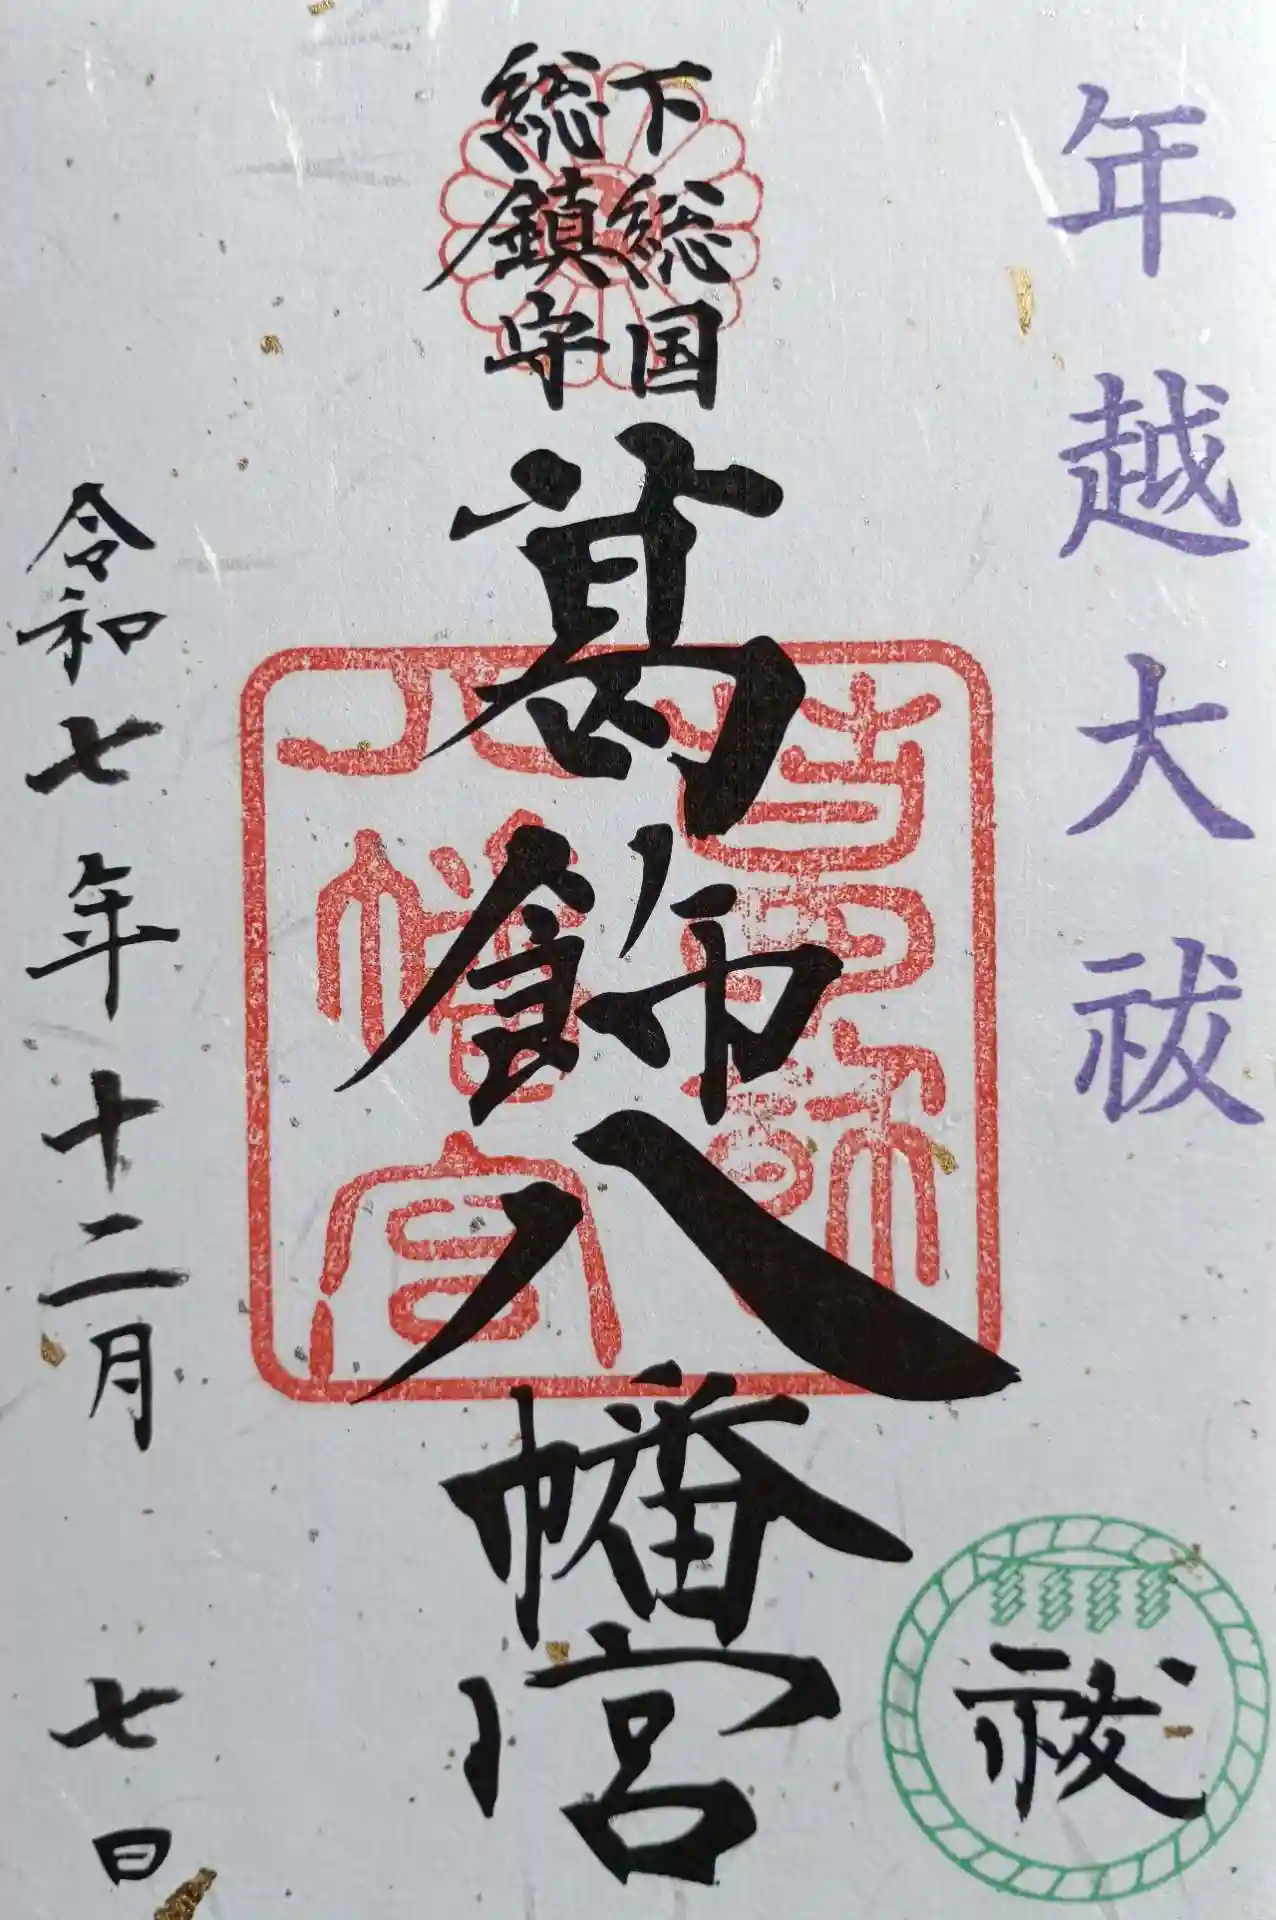 年越大祓
祓
下総国
総鎮守
葛飾八幡宮
葛飾
八幡宮
令和七年十二月七日